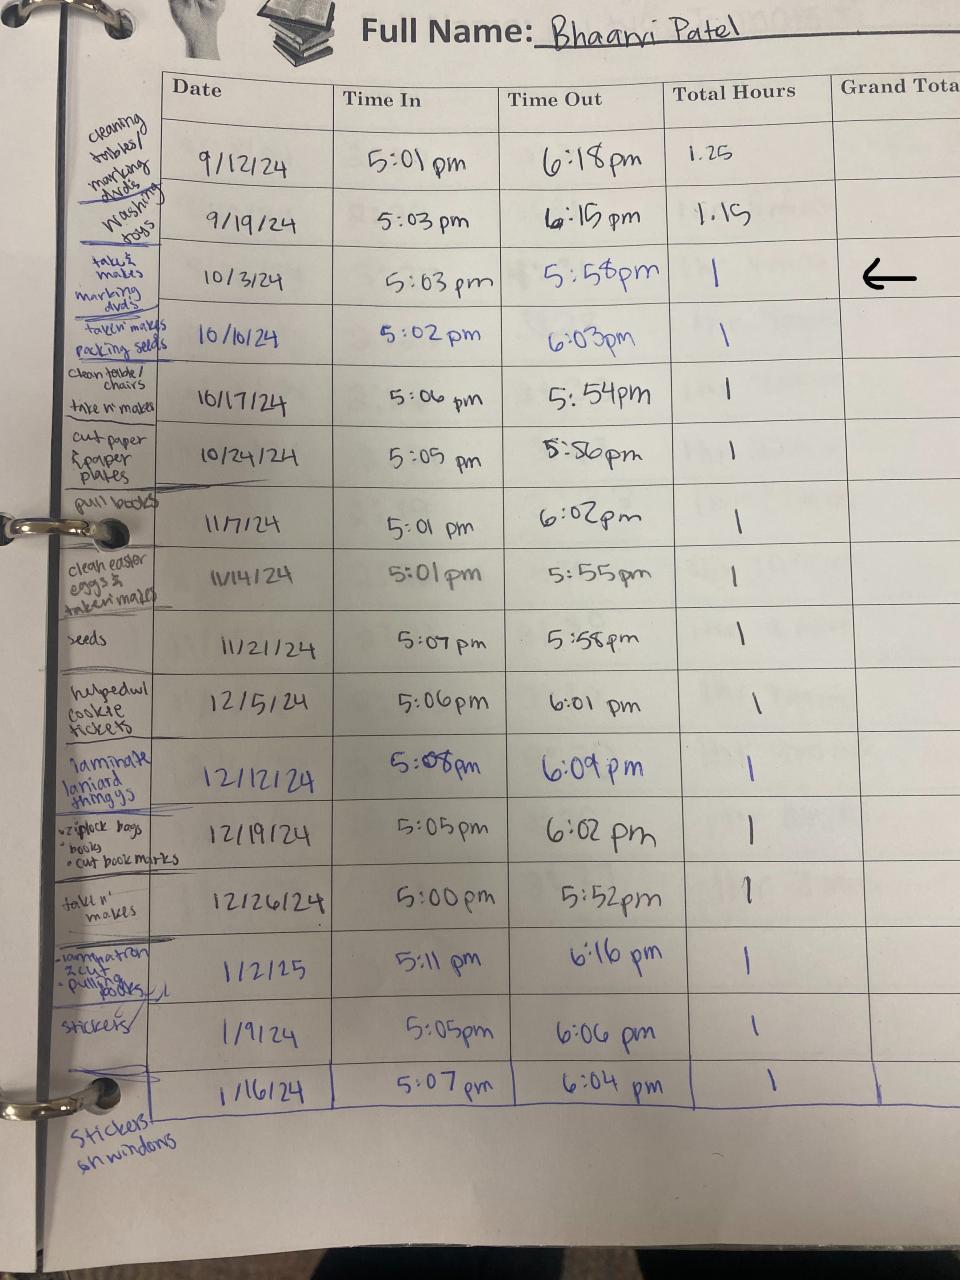 Full Name: Bhaanvi Patel
Date Time In Time Out Total Hours Grand Tota
cleaning
tables/
marking
dvds
9/12/24 5:01 pm 6:18pm 1.25
washing
toys
9/19/24 5:03 pm 6:15 pm 1.15
take &
makes
marking
dvds
10/3/24 5:03 pm 5:58pm 1 ←
taken' makes
packing seeds
10/10/24 5:02 pm 6:03pm 1
clean table/
chairs
take n' makes
10/17/24 5:06 pm 5:54pm 1
cut paper
& paper
plates
10/24/24 5:05 pm 5:56pm 1
pull books
11/7/24 5:01 pm 6:02pm 1
clean easter
eggs &
take n' makes
11/14/24 5:01pm 5:55pm 1
seeds
11/21/24 5:07 pm 5:58pm 1
helped w/
cookie
tickets
12/5/24 5:06pm 6:01 pm 1
laminate
laniard
thinggys
12/12/24 5:08pm 6:09 pm 1
• ziplock bags
• books
• cut bookmarks
12/19/24 5:05pm 6:02 pm 1
take n'
makes
12/26/24 5:00pm 5:52pm 1
& cut
• pulling
books
1/2/25 5:11 pm 6:16 pm 1
stickers
1/9/24 5:05pm 6:06 pm 1
1/16/24 5:07 pm 6:04 pm 1
Stickers
on windows